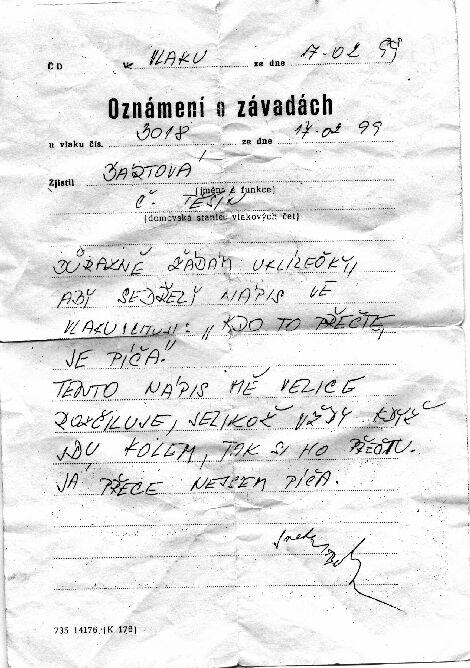 ČD ve VLAKU ze dne 17.02 99
Oznámení o závadách
u vlaku čís. 3018 ze dne 17.02 99
Zjistil BARTOVÁ
(jméno a funkce)
Č. TĚŠÍN
(domovská stanice vlakových čet)
DŮRAZNĚ ŽÁDÁM UKLÍZEČKY,
ABY SEDŘELY NÁPIS VE
VLAKU : „KDO TO PŘEČTE,
JE PÍČA."
TENTO NÁPIS MĚ VELICE
ROZČILUJE, JELIKOŽ VŽDY KDYŽ
JDU KOLEM, TAK SI HO PŘEČTU.
JÁ PŘECE NEJSEM PÍČA.
735 14176 (K 178)